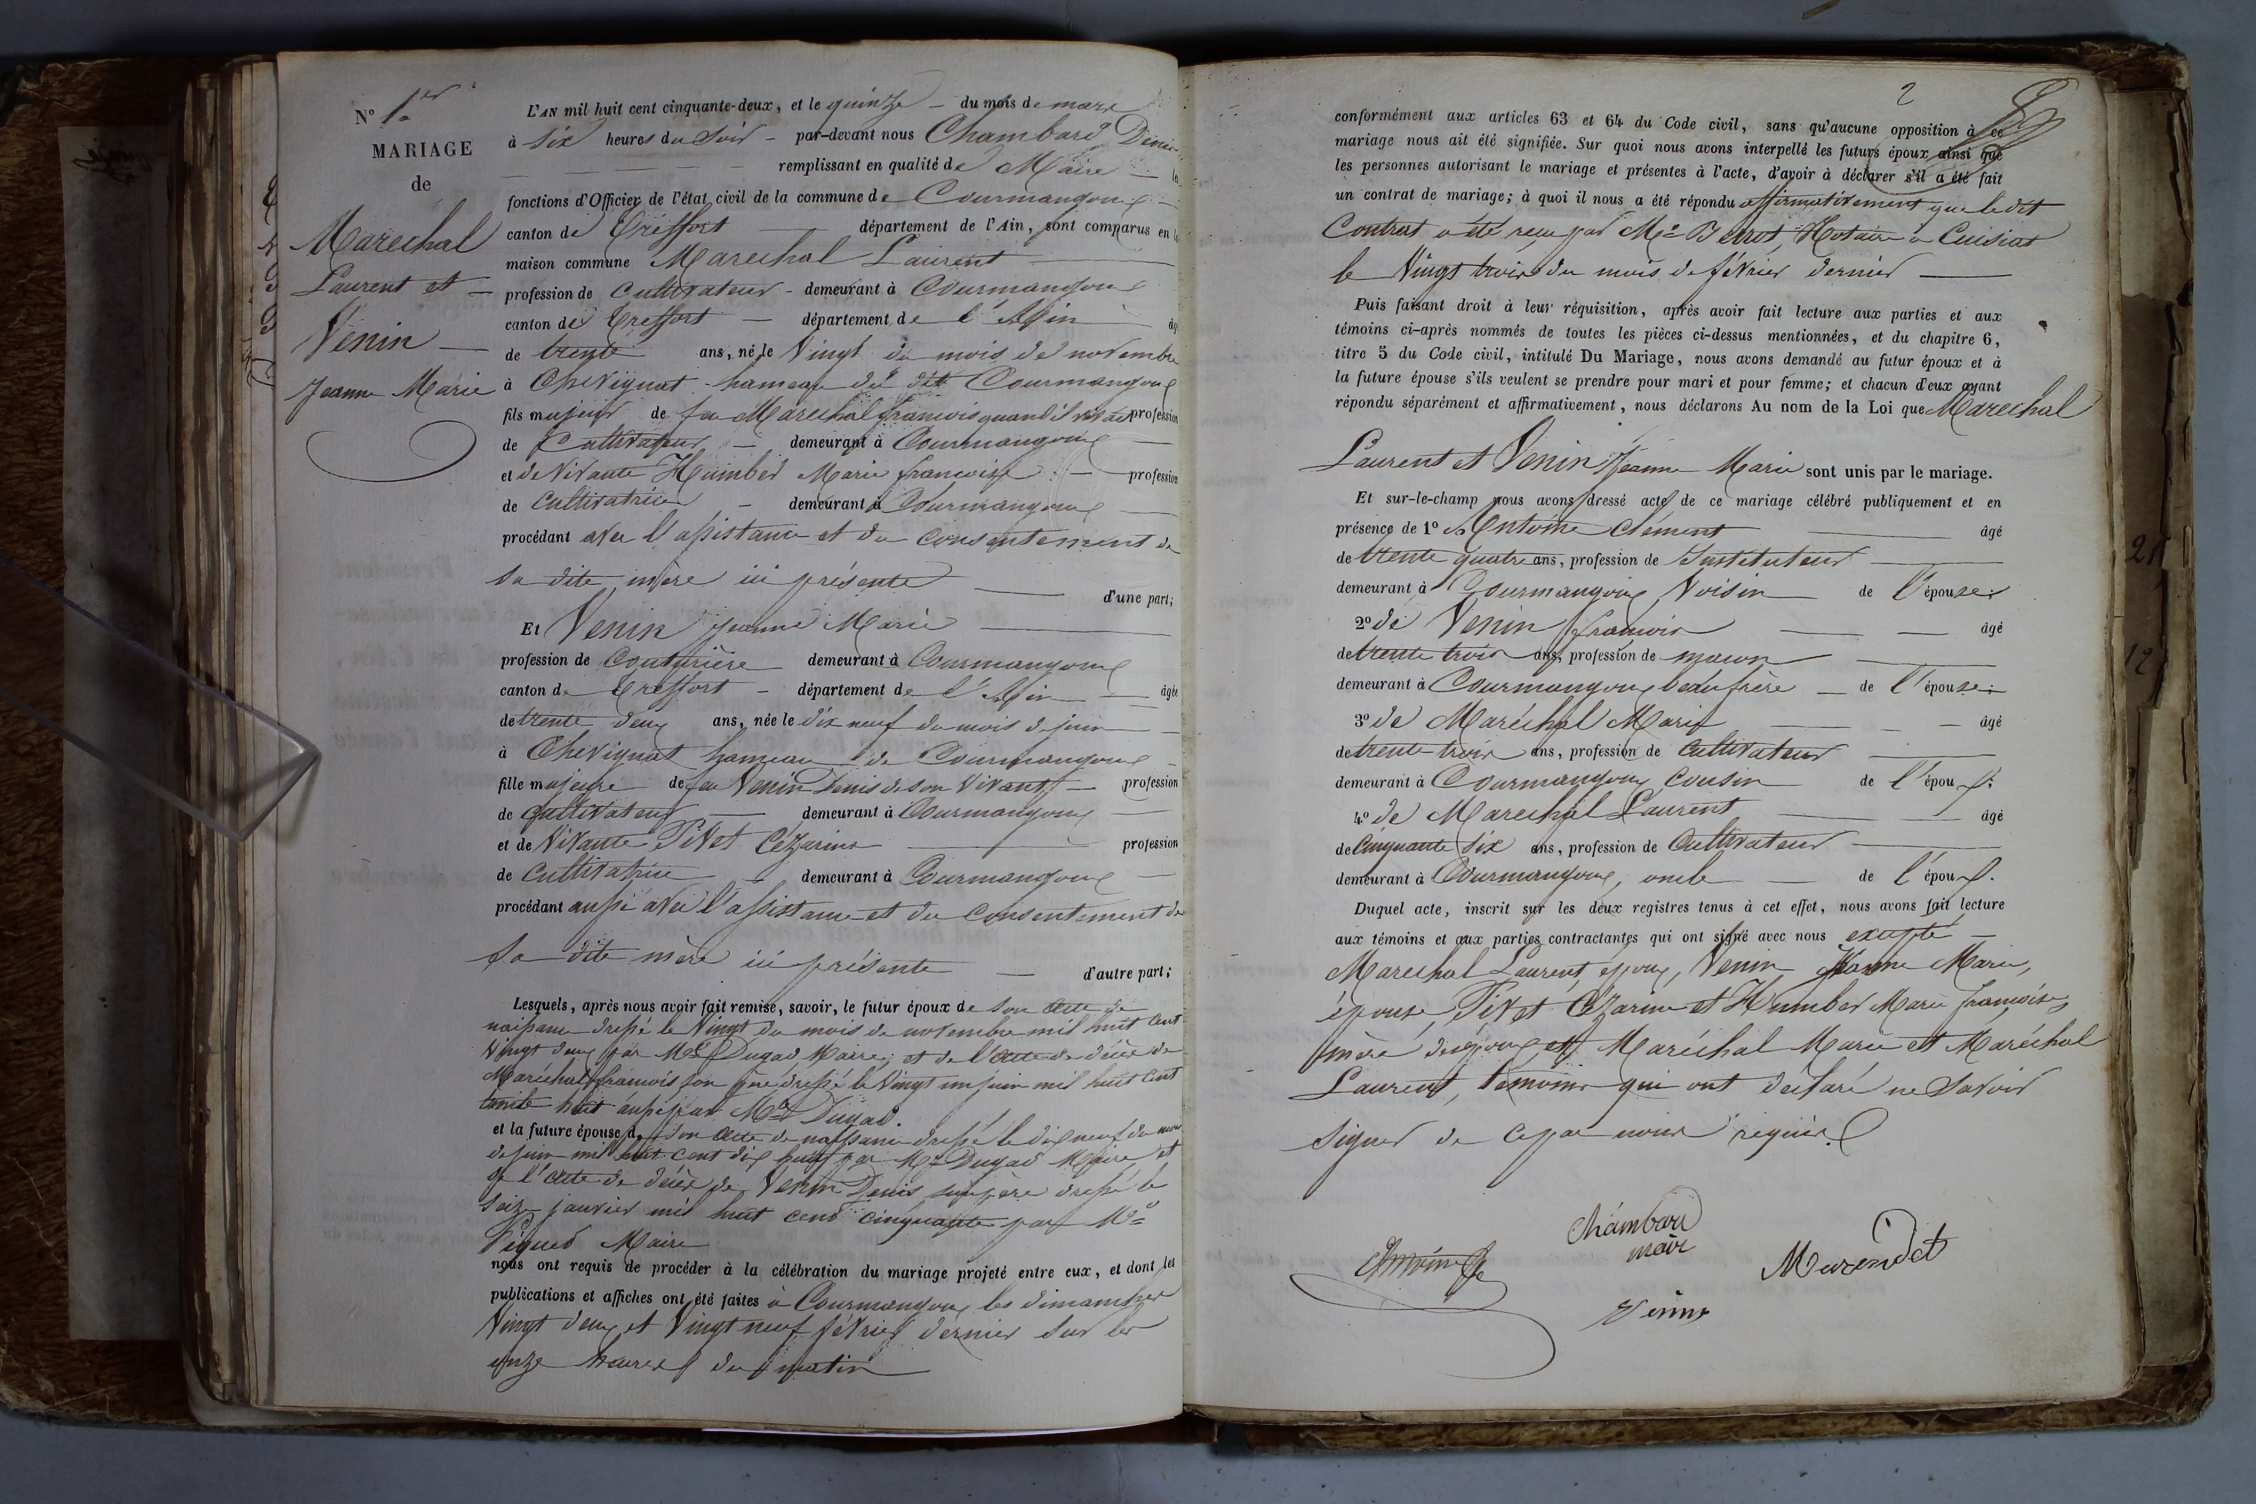 N° 1er
MARIAGE
de
Marechal
Laurent et
Venin
Jeanne Marie
L'AN mil huit cent cinquante-deux, et le quinze du mois de mars
à six heures du soir par-devant nous Chambard Denis
remplissant en qualité de Maire les
fonctions d'Officier de l'état civil de la commune de Courmangoux
canton de Treffort département de l'Ain, sont comparus en la
maison commune Marechal Laurent
profession de cultivateur demeurant à Courmangoux
canton de Treffort département de l'Ain âgé
de trente ans, né le Vingt du mois de novembre
à Chevignat hameau du dit Courmangoux
fils majeur de feu Marechal francois quand il vivait profession
de Cultivateur demeurant à Courmangoux
et de Vivante Humber Marie francoise profession
de Cultivatrice demeurant à Courmangoux
procédant avec l'assistance et du consentement de
sa dite mère ici présente d'une part;
Et Venin Jeanne Marie
profession de Couturière demeurant à Courmangoux
canton de Treffort département de l'Ain âgée
de trente deux ans, née le dix neuf du mois de juin
à Chevignat hameau de Courmangoux
fille majeure de feu Venin Denis de son Vivant profession
de cultivateur demeurant à Courmangoux
et de Vivante Pivet Cézarine profession
de Cultivatrice demeurant à Courmangoux
procédant aussi avec l'assistance et du consentement de
sa dite mère ici présente d'autre part;
Lesquels, après nous avoir fait remise, savoir, le futur époux de son acte de
naissance dressé le Vingt du mois de novembre mil huit cent
Vingt deux par Mr Dugad Maire, et de l'acte de décès de
Maréchal francois son père dressé le Vingt un juin mil huit cent
trente huit aussi par Mr Dugad.
et la future épouse de son acte de naissance dressé le dix neuf du mois
de juin mil huit cent dix neuf par Mr Dugad Maire et
de l'acte de décès de Venin Denis son père dressé le
seize janvier mil huit cent cinquante par Mr
Maire
nous ont requis de procéder à la célébration du mariage projeté entre eux, et dont les
publications et affiches ont été faites à Courmangoux les dimanches
Vingt deux et Vingt neuf février dernier sur les
onze heures du matin
2
conformément aux articles 63 et 64 du Code civil, sans qu'aucune opposition à ce
mariage nous ait été signifiée. Sur quoi nous avons interpellé les futurs époux ainsi que
les personnes autorisant le mariage et présentes à l'acte, d'avoir à déclarer s'il a été fait
un contrat de mariage; à quoi il nous a été répondu affirmativement que le dit
Contrat a été reçu par Me Perrot, Notaire à Cuisiat
le Vingt trois du mois de février dernier
Puis faisant droit à leur réquisition, après avoir fait lecture aux parties et aux
témoins ci-après nommés de toutes les pièces ci-dessus mentionnées, et du chapitre 6,
titre 5 du Code civil, intitulé Du Mariage, nous avons demandé au futur époux et à
la future épouse s'ils veulent se prendre pour mari et pour femme; et chacun d'eux ayant
répondu séparément et affirmativement, nous déclarons Au nom de la Loi que Marechal
Laurent et Venin Jeanne Marie sont unis par le mariage.
Et sur-le-champ nous avons dressé acte de ce mariage célébré publiquement et en
présence de 1° Antoine Clément âgé
de trente quatre ans, profession de Instituteur
demeurant à Courmangoux Voisin de l'épouse
2° de Venin francois âgé
de trente trois ans, profession de maçon
demeurant à Courmangoux beau frère de l'épouse
3° de Maréchal Marie âgé
de trente trois ans, profession de cultivateur
demeurant à Courmangoux cousin de l'époux
4° de Marechal Laurent âgé
de Cinquante six ans, profession de Cultivateur
demeurant à Courmangoux, oncle de l'époux.
Duquel acte, inscrit sur les deux registres tenus à cet effet, nous avons fait lecture
aux témoins et aux parties contractantes qui ont signé avec nous excepté
Marechal Laurent, époux, Venin Jeanne Marie,
épouse, Pivet Cézarine et Humber Marie francoise,
mère des époux et Maréchal Marie et Maréchal
Laurent, témoins qui ont déclaré ne savoir
signer de ce par nous requis.
Chambard
maire
Antoine Cle
Murendet
Venin